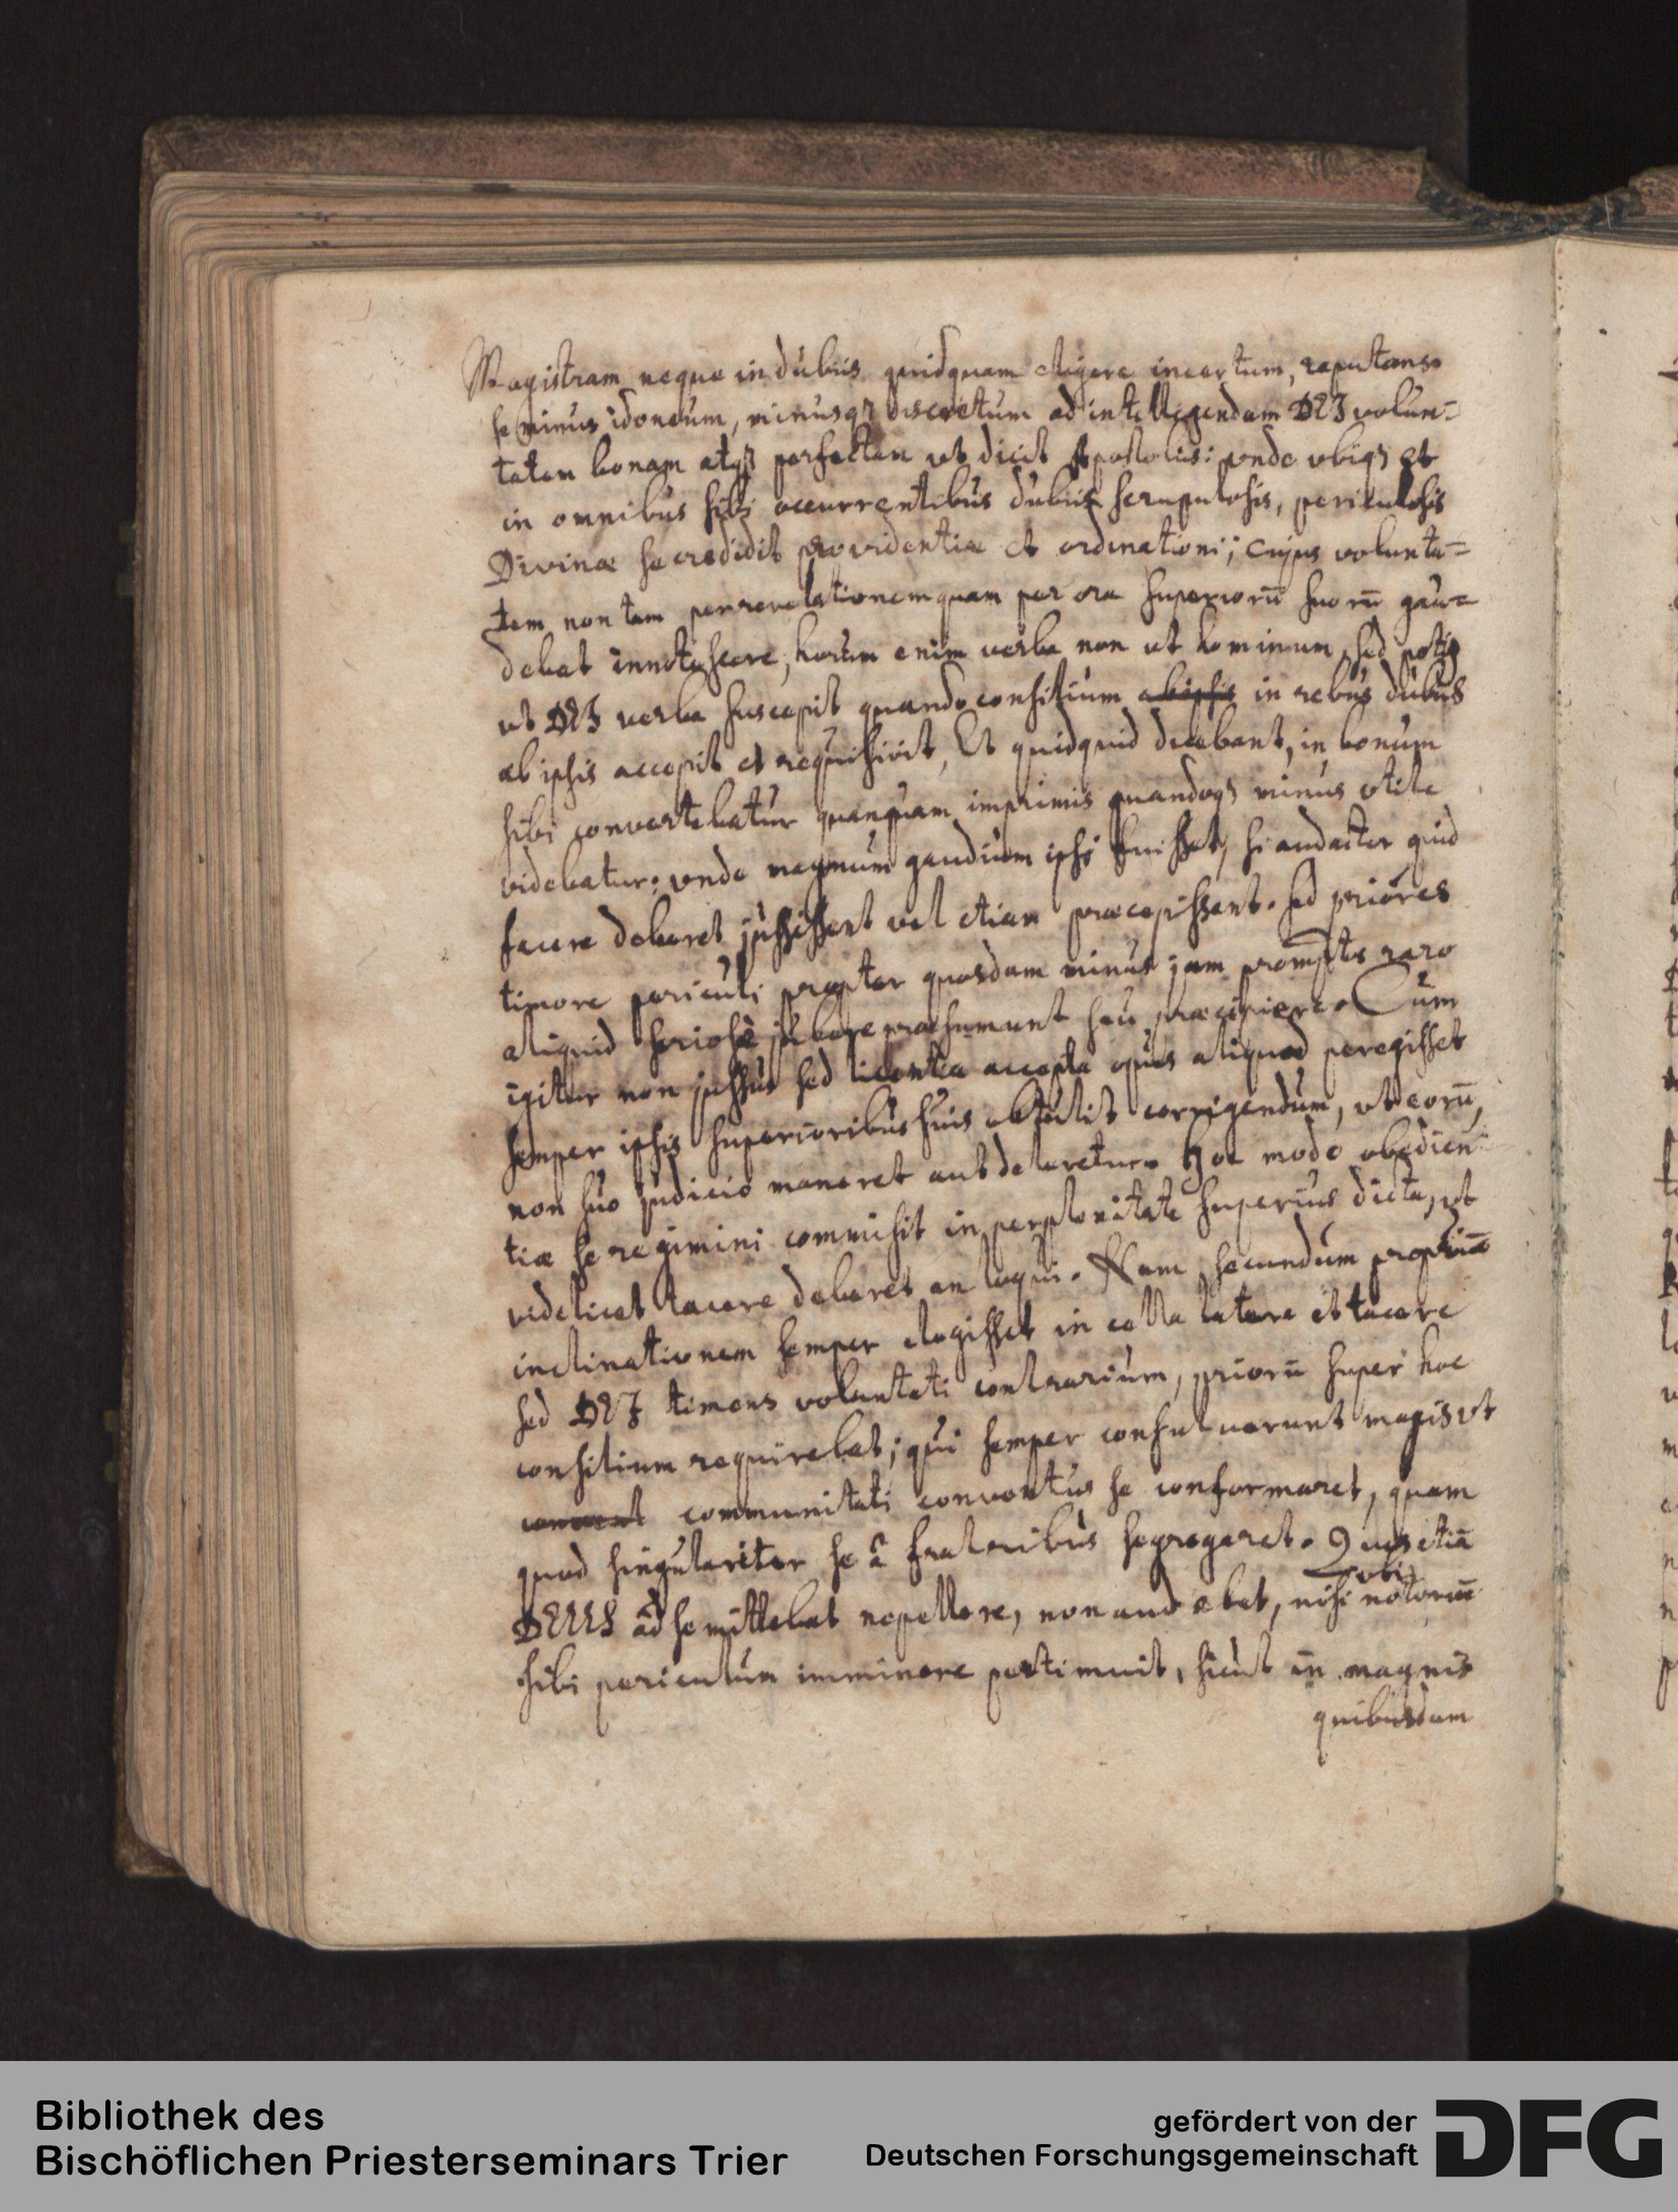 Magistram neque in dubiis quidquam eligere incertum, reputans
se minus idoneum, minusqȝ discretum ad intelligendam DEI volun=
tatem bonam atqȝ perfectam ut dicit Apostolus: unde ubiqȝ et
in omnibus sibi occurrentibus dubiis scrupulosis, periculosis
Divinæ se credidit providentiæ et ordinationi; cujus volunta=
tem non tam per revelationem quam per ora Superiorū suorū gau=
debat innotescere, horum enim verba non ut hominum, sed potiꝰ
ut DEI verba suscepit quando consilium ab ipsis in rebus dubiis
ab ipsis accepit et requisivit, Et quidquid dicebant, in bonum
sibi convertebatur quanquam imprimis quandoqȝ minus utile
videbatur: unde magnum gaudium ipsi fuisset, si audacter quid
facere deberet jussissent vel etiam præcepissent. Sed priores
timore periculi propter quosdam minus jam promptos raro
aliquid seriose jubere præsumunt seu præcipiere. Cum
igitur non jussus sed licentia accepta opus aliquod peregisset
semper ipsis superioribus suis obtulit corrigendum, ut eorū,
non suo judicio maneret aut deleretur. Hoc modo obedien
tiæ se regimini commisit in perplexitate superius dicta, ut
videlicet tacere deberet an loqui. Nam secundum propriā
inclinationem semper elegisset in cella latere et tacere
sed DEI timens voluntati contrarium, priorū super hoc
consilium requirebat; qui semper consuluerunt magis ut
convent communitati conventus se conformaret, quam
quod singulariter se â fratribus segregaret. Quos etiā
DEUS ad se mittebat repellere, non audebat, nisi ubi notoriū
sibi periculum imminere pertimuit, sicut in magnis
quibusdam
Bibliothek des
Bischöflichen Priesterseminars Trier
gefördert von der
Deutschen Forschungsgemeinschaft
DFG